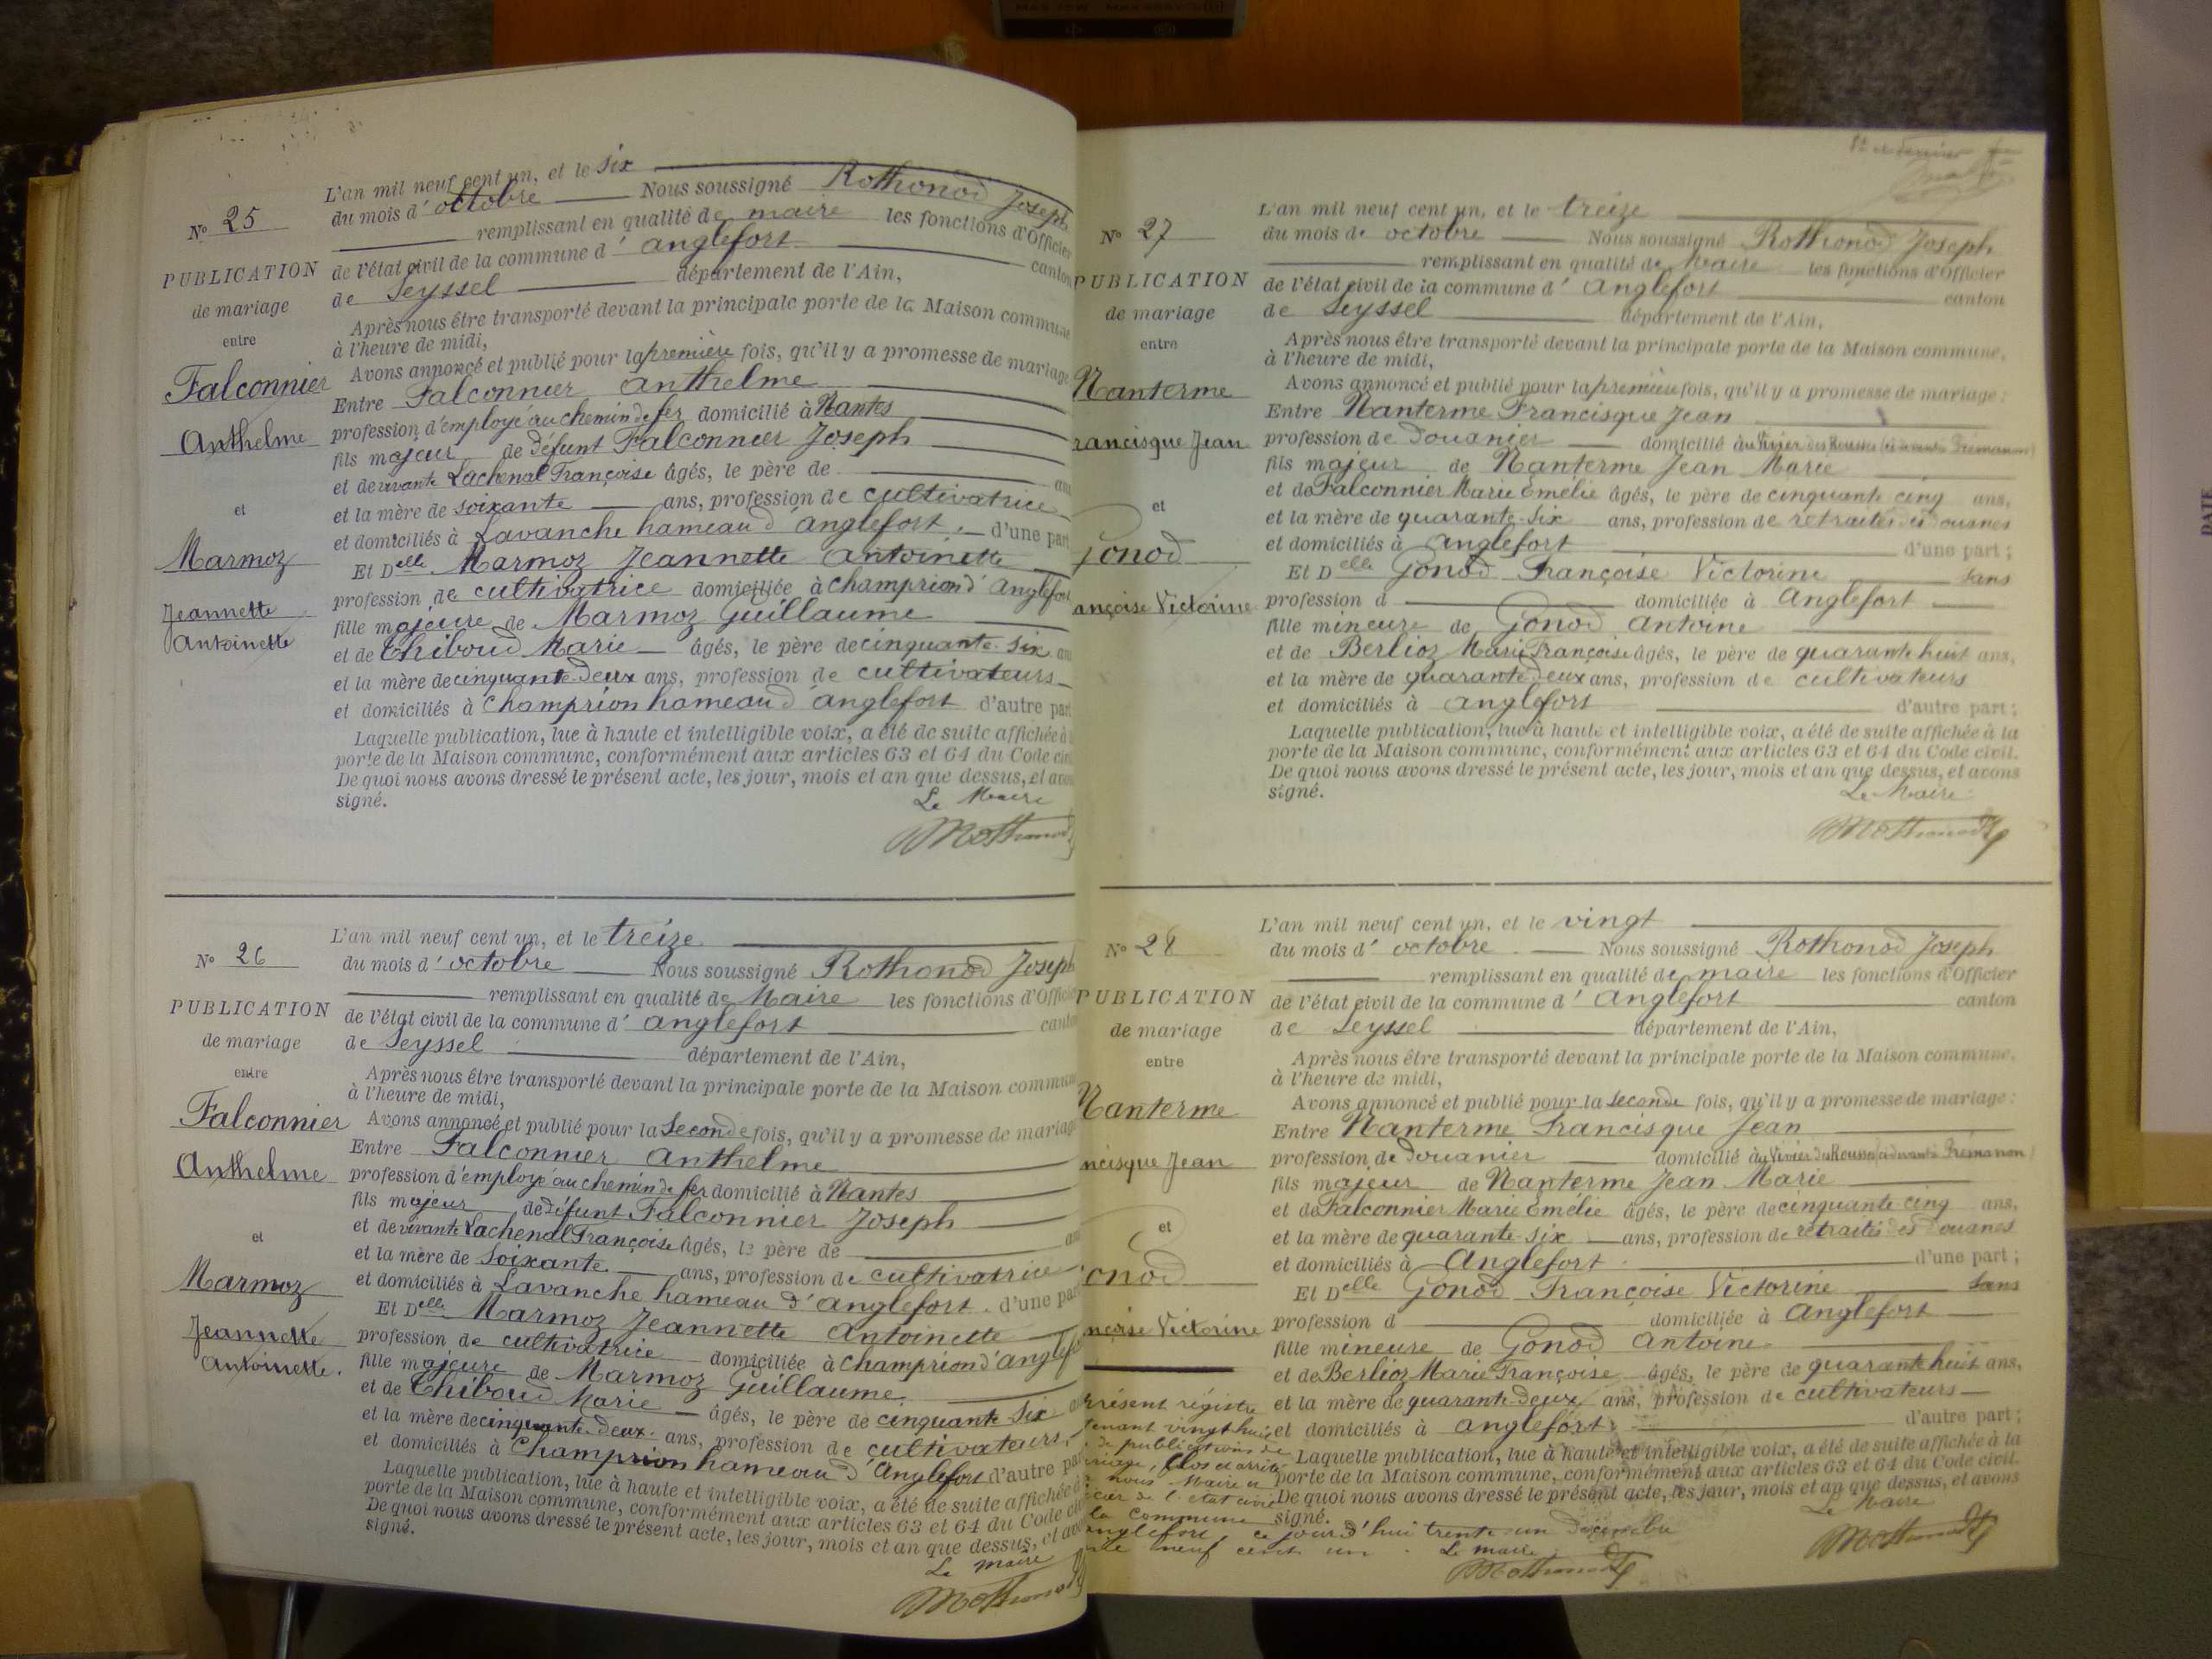 N° 25
PUBLICATION
de mariage
entre
Falconnier
Anthelme
et
Marmoz
Jeannette
Antoinette
L'an mil neuf cent un, et le six
du mois d'octobre Nous soussigné Rothonod Joseph
remplissant en qualité de maire les fonctions d'Officier
de l'état civil de la commune d'anglefort canton
de Seyssel département de l'Ain,
Après nous être transporté devant la principale porte de la Maison commune
à l'heure de midi,
Avons annoncé et publié pour la première fois, qu'il y a promesse de mariage
Entre Falconnier anthelme
profession d'employé au chemin de fer domicilié à Nantes
fils majeur de défunt Falconnier Joseph
et de vivante Lachenal Françoise âgés, le père de ans
et la mère de soixante ans, profession de cultivatrice
et domiciliés à Lavanche hameau d'anglefort. d'une part
Et Delle Marmoz Jeannette Antoinette
profession de cultivatrice domiciliée à Champrion d'anglefort
fille majeure de Marmoz Guillaume
et de Thiboud Marie âgés, le père de cinquante-six ans
et la mère de cinquante-deux ans, profession de cultivateurs
et domiciliés à Champrion hameau d'anglefort d'autre part
Laquelle publication, lue à haute et intelligible voix, a été de suite affichée à
porte de la Maison commune, conformément aux articles 63 et 64 du Code civ
De quoi nous avons dressé le présent acte, les jour, mois et an que dessus, et avo
signé.
Le Maire
Rothonod
N° 26
PUBLICATION
de mariage
entre
Falconnier
Anthelme
et
Marmoz
Jeannette
Antoinette.
L'an mil neuf cent un, et le treize
du mois d'octobre Nous soussigné Rothonod Joseph
remplissant en qualité de Maire les fonctions d'Officier
de l'état civil de la commune d'anglefort canton
de Seyssel département de l'Ain,
Après nous être transporté devant la principale porte de la Maison commune
à l'heure de midi,
Avons annoncé et publié pour la seconde fois, qu'il y a promesse de mariage
Entre Falconnier anthelme
profession d'employé au chemin de fer domicilié à Nantes
fils majeur de défunt Falconnier Joseph
et de vivante Lachenal Françoise âgés, le père de ans
et la mère de soixante ans, profession de cultivatrice
et domiciliés à Lavanche hameau d'anglefort. d'une part
Et Delle Marmoz Jeannette Antoinette
profession de cultivatrice domiciliée à Champrion d'anglefo
fille majeure de Marmoz Guillaume
et de Thiboud Marie âgés, le père de cinquante six
et la mère de cinquante-deux ans, profession de cultivateurs
et domiciliés à Champrion hameau d'Anglefort d'autre part
Laquelle publication, lue à haute et intelligible voix, a été de suite affichée à
porte de la Maison commune, conformément aux articles 63 et 64 du Code civ
De quoi nous avons dressé le présent acte, les jour, mois et an que dessus, et avo
signé.
Le maire
Rothonod
N° 27
PUBLICATION
de mariage
entre
Nanterme
rancisque Jean
et
Gonod
ançoise Victorine
L'an mil neuf cent un, et le treize
du mois d'octobre Nous soussigné Rothonod Joseph
remplissant en qualité de Maire les fonctions d'Officier
de l'état civil de la commune d'Anglefort canton
de Seyssel département de l'Ain,
Après nous être transporté devant la principale porte de la Maison commune,
à l'heure de midi,
Avons annoncé et publié pour la première fois, qu'il y a promesse de mariage :
Entre Nanterme Francisque Jean
profession de douanier domicilié au Vivier des Rousses (ci devant à Prémanon)
fils majeur de Nanterme Jean Marie
et de Falconnier Marie Emélie âgés, le père de cinquante cinq ans,
et la mère de quarante-six ans, profession de retraités des douanes
et domiciliés à Anglefort d'une part ;
Et Delle Gonod Françoise Victorine sans
profession d domiciliée à Anglefort
fille mineure de Gonod Antoine
et de Berlioz Marie Françoise âgés, le père de quarante huit ans,
et la mère de quarante deux ans, profession de cultivateurs
et domiciliés à Anglefort d'autre part ;
Laquelle publication, lue à haute et intelligible voix, a été de suite affichée à la
porte de la Maison commune, conformément aux articles 63 et 64 du Code civil.
De quoi nous avons dressé le présent acte, les jour, mois et an que dessus, et avons
signé.
Le Maire
Rothonod
N° 28
PUBLICATION
de mariage
entre
Nanterme
ncisque Jean
et
onod
nçoise Victorine
L'an mil neuf cent un, et le vingt
du mois d'octobre Nous soussigné Rothonod Joseph
remplissant en qualité de maire les fonctions d'Officier
de l'état civil de la commune d'Anglefort canton
de Seyssel département de l'Ain,
Après nous être transporté devant la principale porte de la Maison commune,
à l'heure de midi,
Avons annoncé et publié pour la seconde fois, qu'il y a promesse de mariage :
Entre Nanterme Francisque Jean
profession de douanier domicilié au Vivier des Rousses (ci devant à Prémanon)
fils majeur de Nanterme Jean Marie
et de Falconnier Marie Emélie âgés, le père de cinquante cinq ans,
et la mère de quarante-six ans, profession de retraités des douanes
et domiciliés à Anglefort d'une part ;
Et Delle Gonod Françoise Victorine sans
profession d domiciliée à Anglefort
fille mineure de Gonod Antoine
et de Berlioz Marie Françoise âgés, le père de quarante huit ans,
et la mère de quarante-deux ans, profession de cultivateurs
et domiciliés à Anglefort d'autre part ;
Laquelle publication, lue à haute et intelligible voix, a été de suite affichée à la
porte de la Maison commune, conformément aux articles 63 et 64 du Code civil.
De quoi nous avons dressé le présent acte, les jour, mois et an que dessus, et avons
signé.
Le Maire
Rothonod
résent régistre
tenant vingt huit
de publications de
riage, Clos et arrêté
nous Maire et
cier de l'état civil
la Commune
anglefort, ce jour d'hui trente-un Décembre
neuf cent un. Le maire
Rothonod
DATE